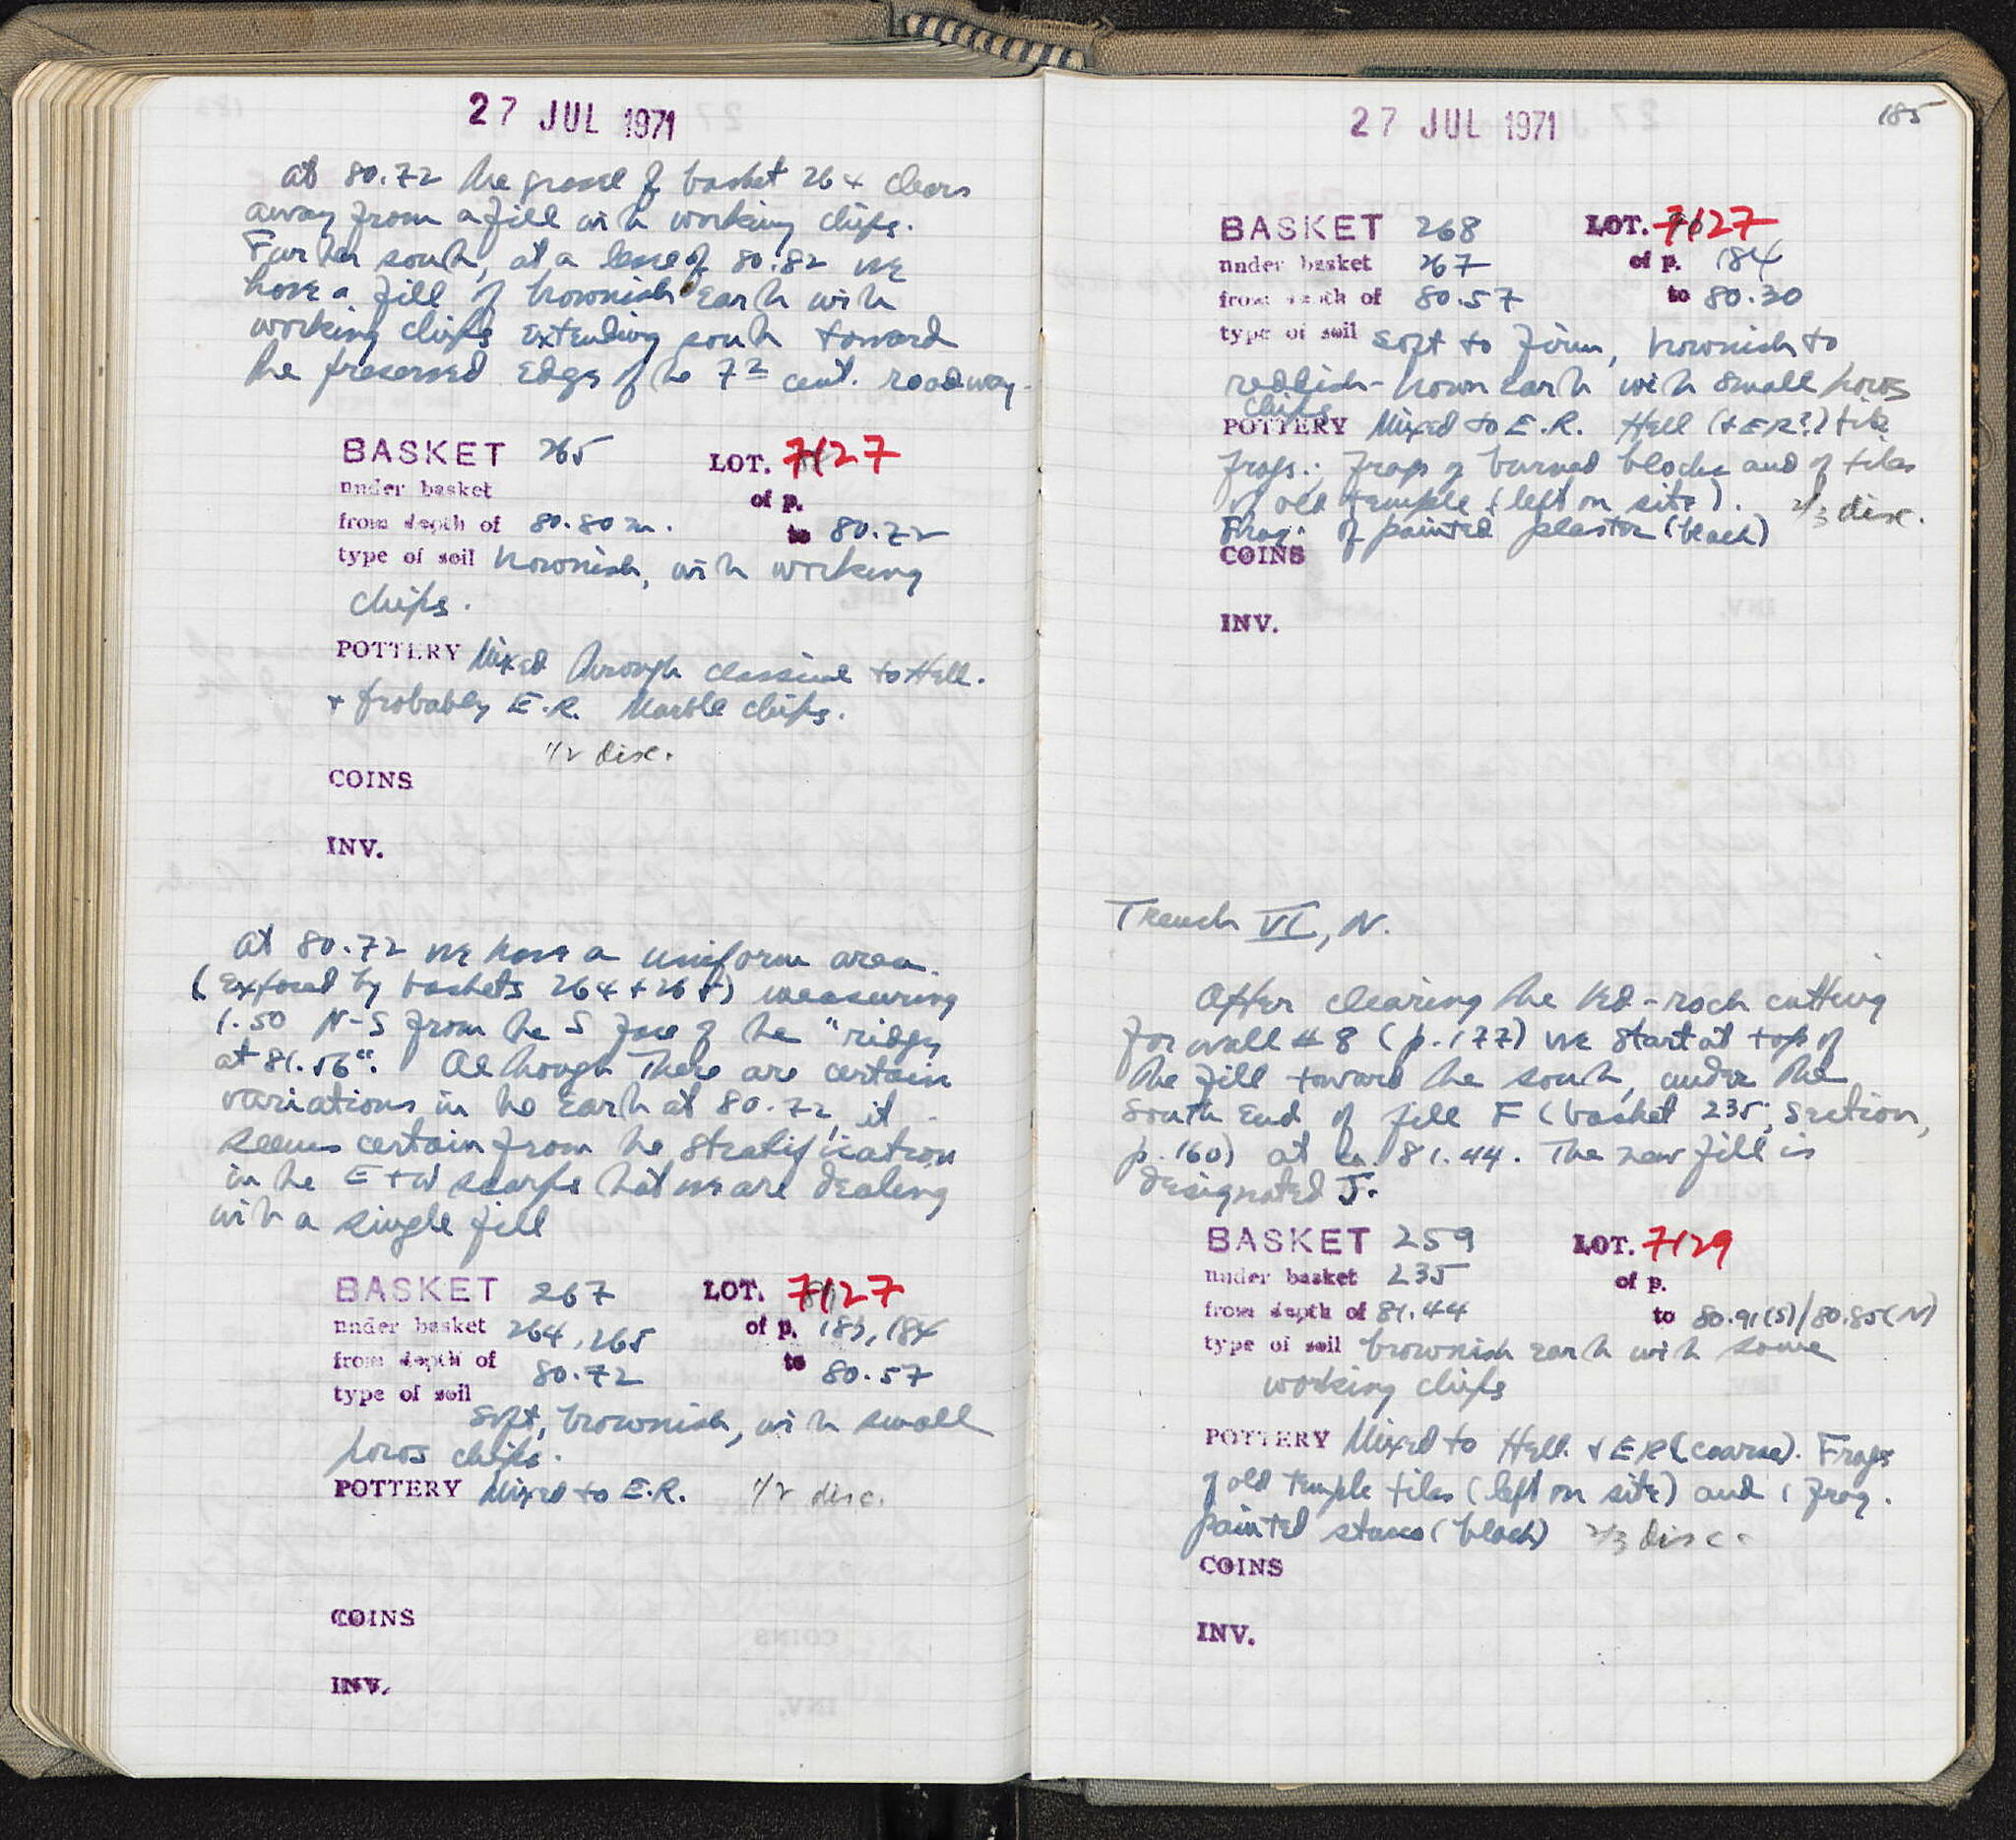 27 JUL 1971
at 80.72 the grave of basket 264 clears
away from a fill with working chips.
Further south, at a level of 80.82 we
have a fill of brownish earth with
working chips extending south toward
the preserved edge of the 7th cent. roadway.
BASKET 265 LOT. 7127
under basket of p.
from depth of 80.80 m. to 80.72
type of soil brownish, with working
chips.
POTTERY Mixed through classical to Hell.
+ probably E.R. Marble chips.
1/2 disc.
COINS
INV.
at 80.72 we have a uniform area
(exposed by baskets 264 + 265) measuring
1.50 N-S from the S face of the "ridge
at 81.56". Although there are certain
variations in the earth at 80.72, it
seems certain from the stratification
in the E + W scarps that we are dealing
with a single fill
BASKET 267 LOT. 7127
under basket 264, 265 of p. 183, 184
from depth of 80.72 to 80.57
type of soil
Soft, brownish, with small
poros chips.
POTTERY Mixed to E.R. 1/2 disc.
COINS
INV.
185
27 JUL 1971
BASKET 268 LOT. 7127
under basket 267 of p. 184
from depth of 80.57 to 80.30
type of soil Soft to firm, brownish to
reddish-brown earth with small poros
chips
POTTERY Mixed to E.R. Hell (+ E.R.?) tile
frags.; frags of burned blocks and of tiles
of old temple (left on site). 2/3 disc.
Frag. of painted plaster (black)
COINS
INV.
Trench VI, N.
After clearing the bed-rock cutting
for wall #8 (p. 177) we start at top of
the fill toward the south, under the
south end of fill F (basket 235; section,
p. 160) at ca. 81.44. The new fill is
designated J.
BASKET 259 LOT. 7129
under basket 235 of p.
from depth of 81.44 to 80.91(S)/80.85(N)
type of soil brownish earth with some
working chips
POTTERY Mixed to Hell. + E R (coarse). Frags
of old temple tiles (left on site) and 1 frag.
painted stucco (black) 2/3 disc.
COINS
INV.